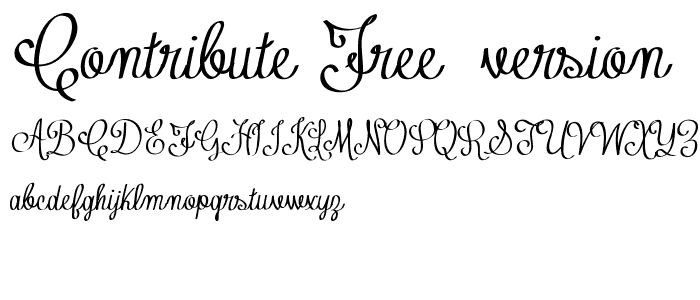 Contribute Free version
ABCDEFGHIJKLMNOPQRSTUVWXYZ
abcdefghijklmnopqrstuvwxyz